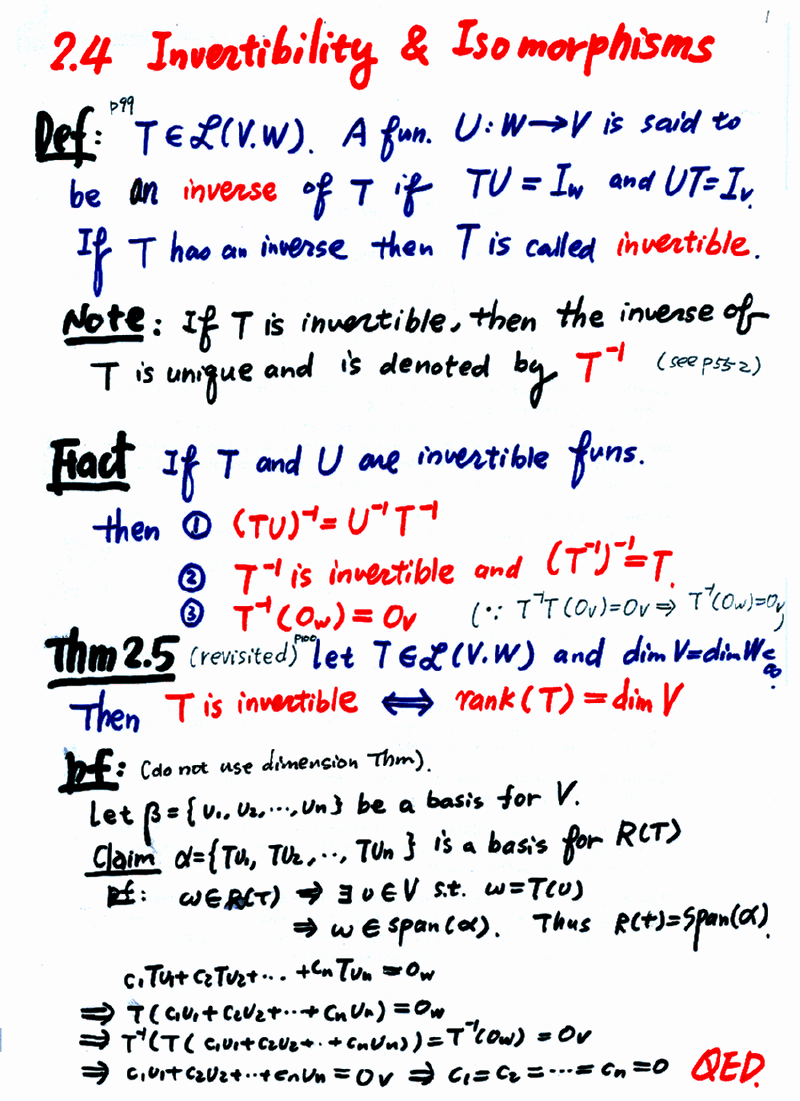 1
2.4 Invertibility & Isomorphisms
Def: p99 T∈ℒ(V.W). A fun. U: W→V is said to
be an inverse of T if TU = I_w and UT=I_v.
If T has an inverse then T is called invertible.
Note: If T is invertible, then the inverse of
T is unique and is denoted by T⁻¹ (see p55-2)
Fact If T and U are invertible funs.
then ① (TU)⁻¹ = U⁻¹T⁻¹
② T⁻¹ is invertible and (T⁻¹)⁻¹=T.
③ T⁻¹(0_w) = 0_v (∵ T⁻¹T(0_v)=0_v ⇒ T⁻¹(0_w)=0_v)
Thm 2.5 (revisited) p100 let T∈ℒ(V.W) and dim V=dim W<∞.
Then T is invertible ⟺ rank(T) = dim V
pf: (do not use dimension Thm).
Let β={υ₁, υ₂, ⋯, υn} be a basis for V.
Claim α={Tυ₁, Tυ₂, ⋯, Tυn} is a basis for R(T)
pf: ω∈R(T) ⇒ ∃ υ∈V s.t. ω=T(υ)
⇒ ω ∈ span(α). Thus R(t)=Span(α).
c₁Tυ₁+c₂Tυ₂+⋯+cnTυn = 0_w
⇒ T(c₁υ₁+c₂υ₂+⋯+cnυn) = 0_w
⇒ T⁻¹(T(c₁υ₁+c₂υ₂+⋯+cnυn)) = T⁻¹(0_w) = 0_v
⇒ c₁υ₁+c₂υ₂+⋯+cnυn = 0_v ⇒ c₁=c₂=⋯=cn=0 QED.